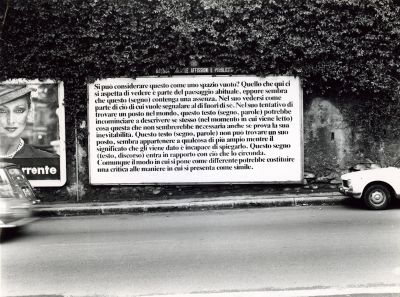 AFFISSIONI E PUBBLICITA
Si può considerare questo come uno spazio vuoto? Quello che qui ci
si aspetta di vedere è parte del paesaggio abituale, eppure sembra
che questo (segno) contenga una assenza. Nel suo vedersi come
parte di ciò di cui vuole segnalare al fuori di se. Nel suo tentativo di
trovare un posto nel mondo, questo testo (segno, parole) potrebbe
incominciare a descrivere se stesso (nel momento in cui viene letto)
cosa questa che non sembrerebbe necessaria anche se prova la sua
inevitabilità. Questo testo (segno, parole) non può trovare un suo
posto, sembra appartenere a qualcosa di più ampio mentre il
significato che gli viene dato è incapace di spiegarlo. Questo segno
(testo, discorso) entra in rapporto con ciò che lo circonda.
Comunque il modo in cui si pone come differente potrebbe costituire
una critica alle maniere in cui si presenta come simile.
rrente